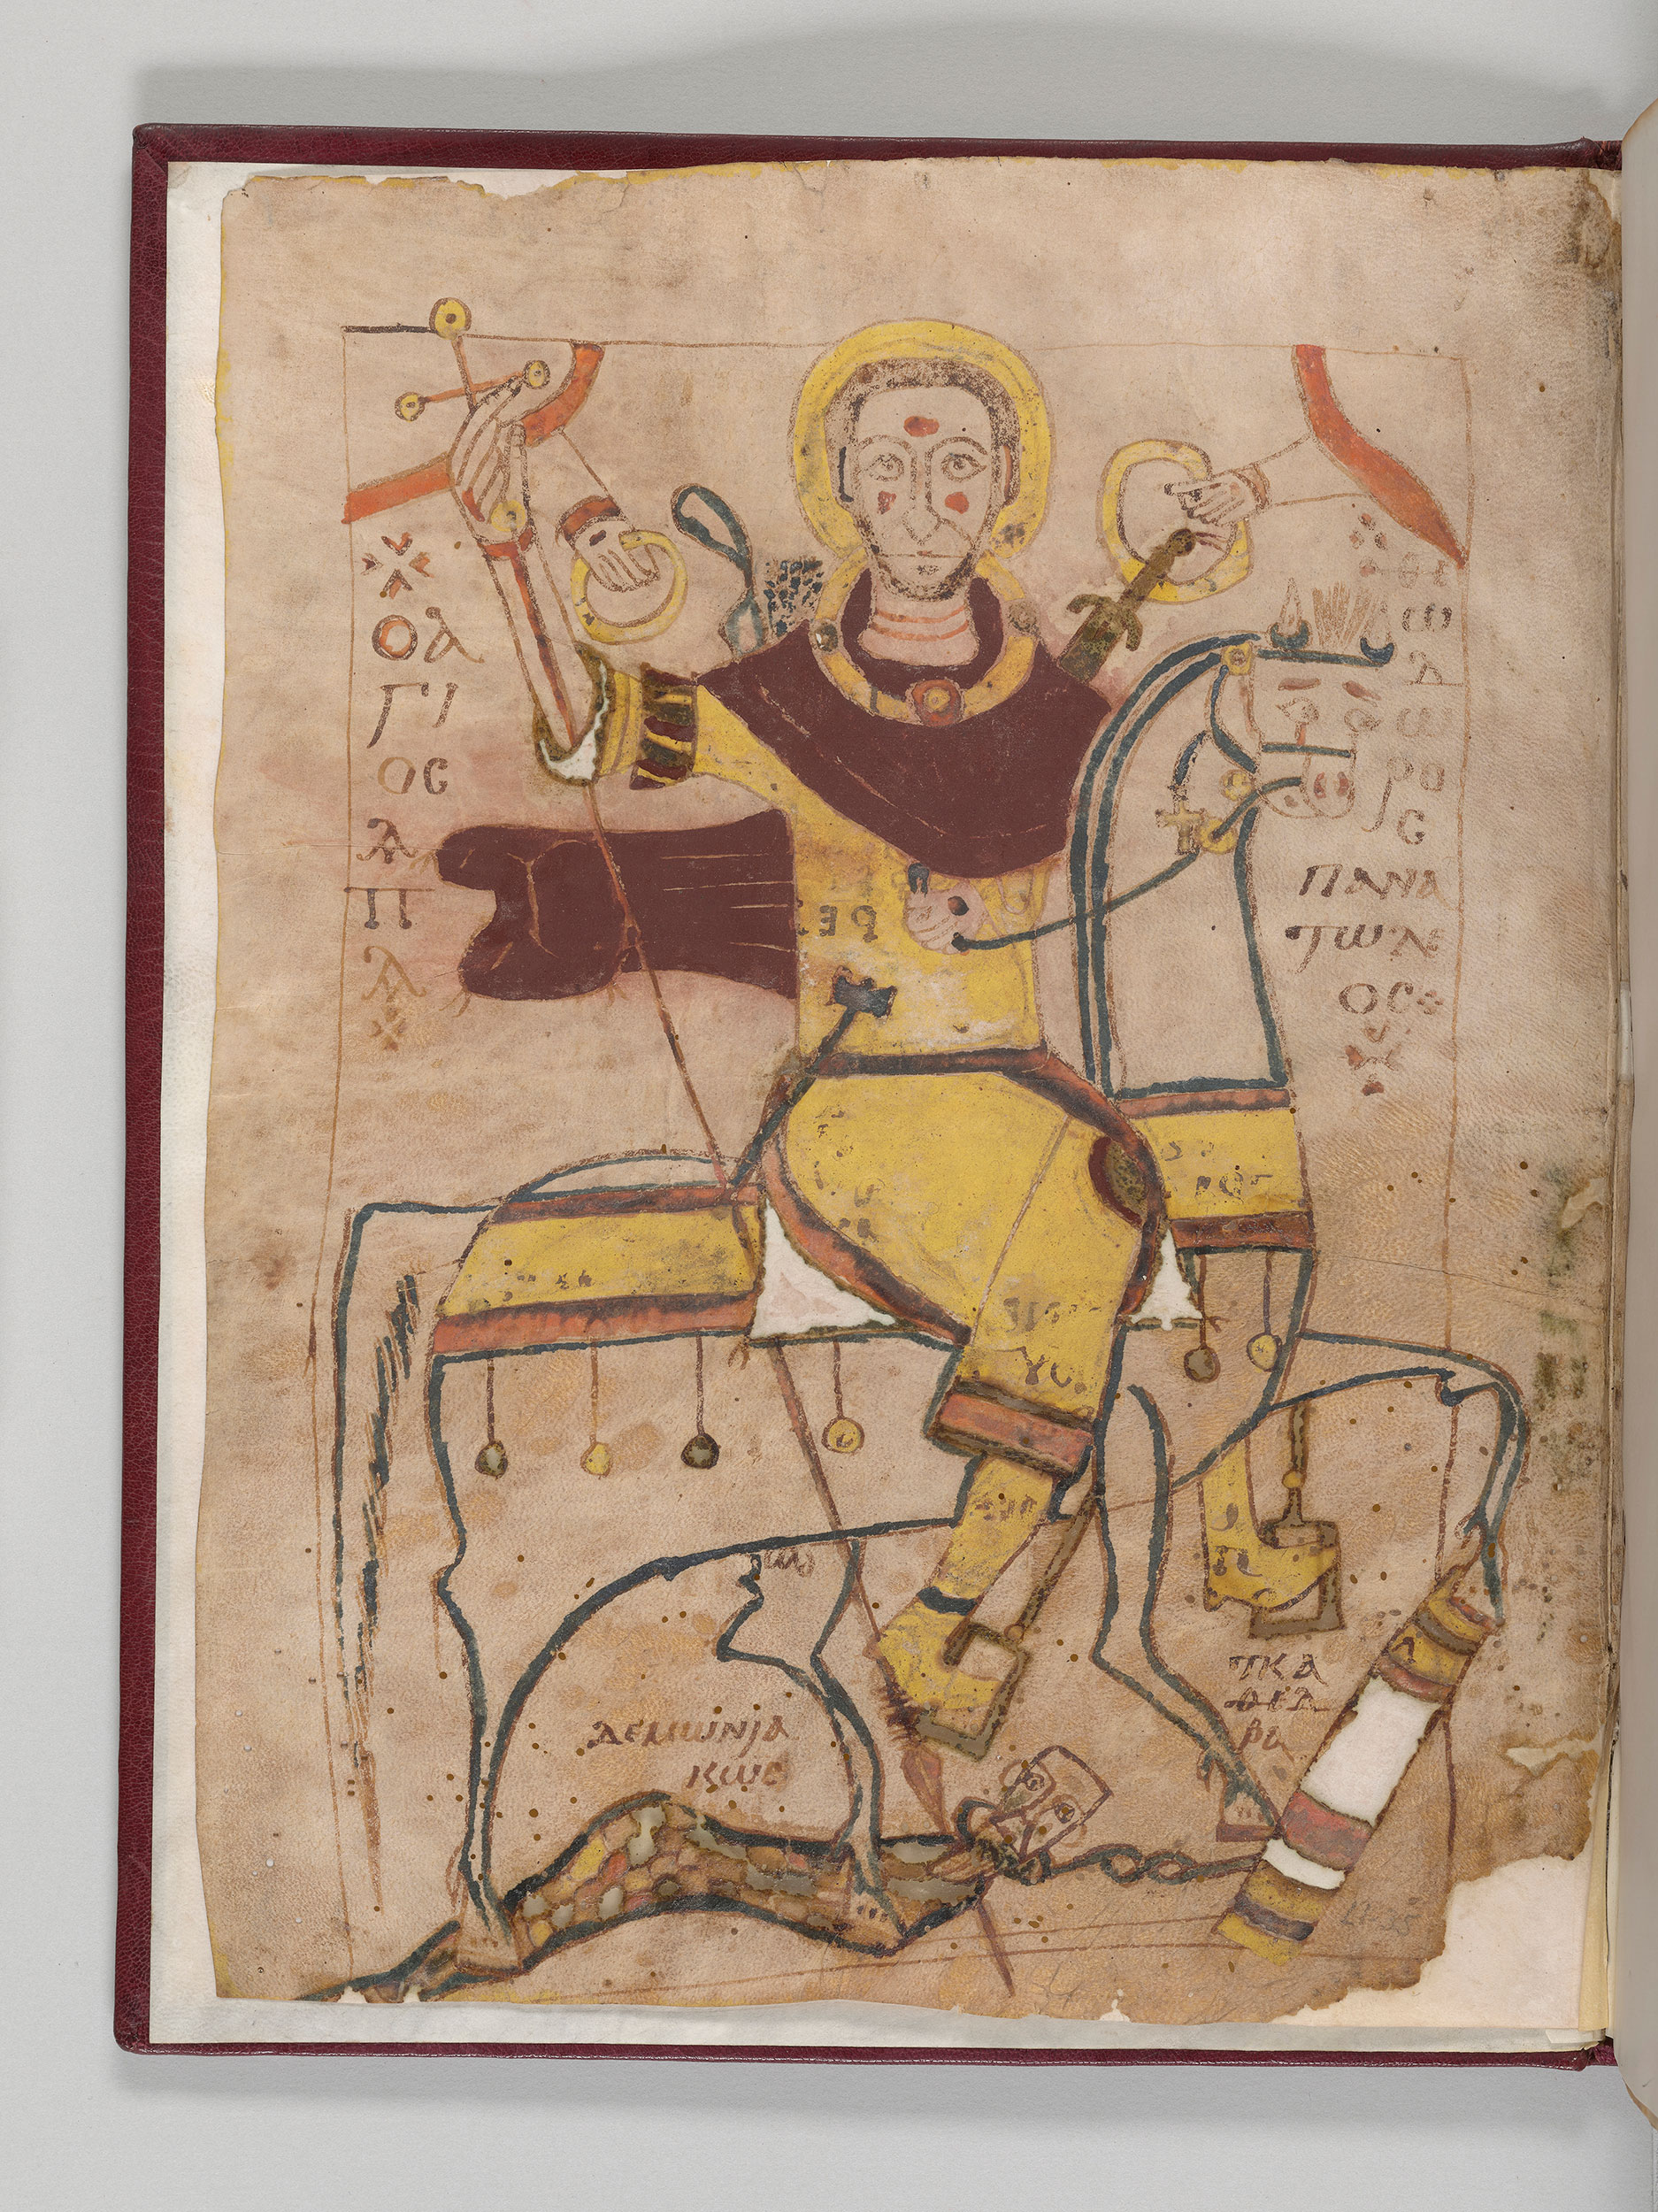 ⲟⲁ
ⲅⲓ
ⲟⲥ
ⲁ
ⲡ
ⲁ
ⲑⲉ
ⲱ
ⲇ
ⲱ
ⲣⲟ
ⲥ
ⲡⲁⲛⲁ
ⲧⲱⲗ
ⲟⲥ
ⲇⲉⲙⲱⲛⲓⲁ
ⲕⲱⲥ
ⲧⲕⲁ
ⲑⲉⲇ
ⲣⲁ